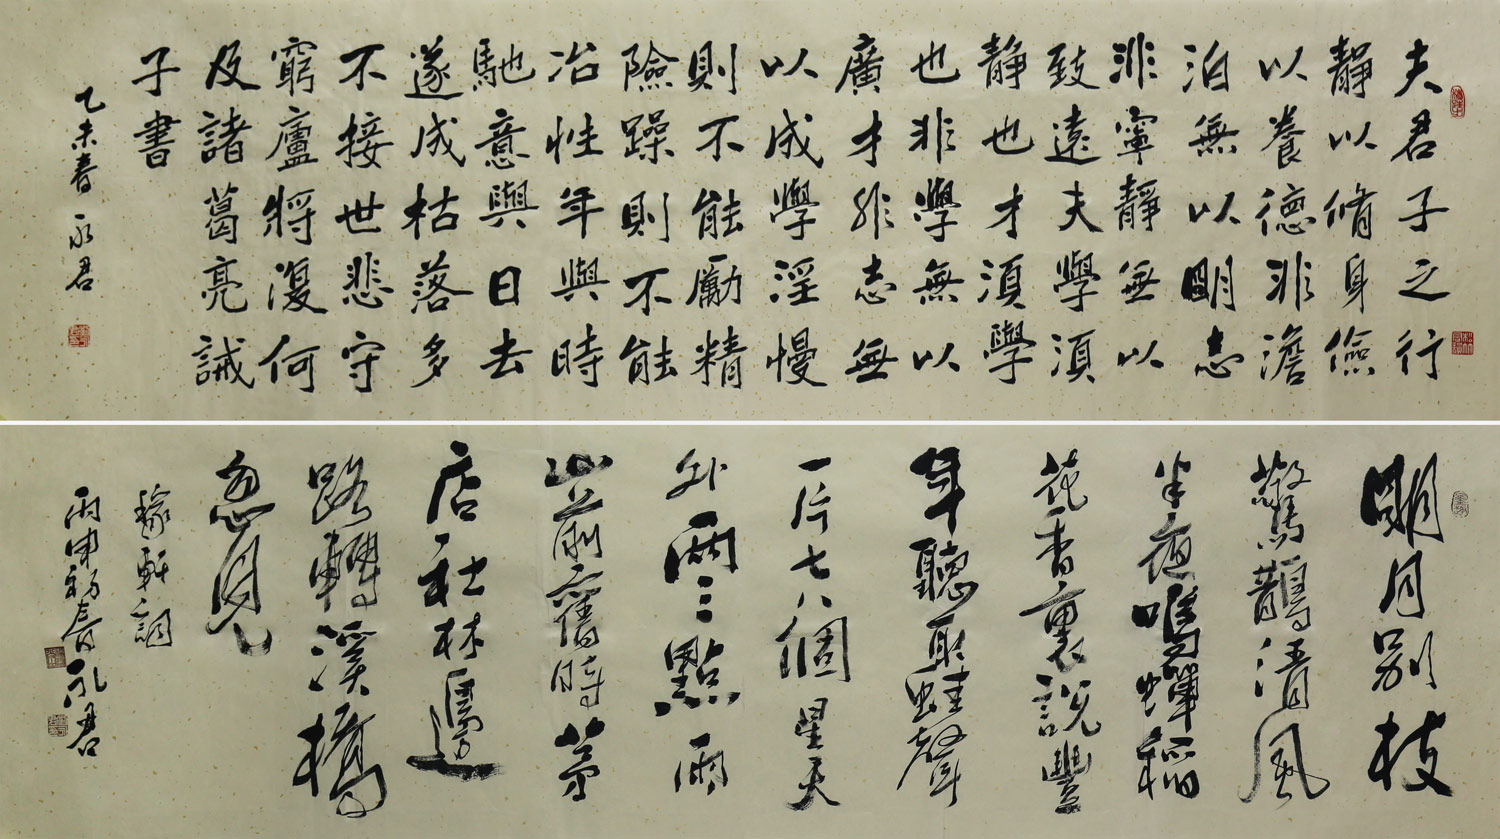 夫君子之行
靜以脩身儉
以養德非澹
泊無以明志
非寧靜無以
致遠夫學須
靜也才須學
也非學無以
廣才非志無
以成學淫慢
則不能勵精
險躁則不能
冶性年與時
馳意與日去
遂成枯落多
不接世悲守
窮廬將復何
及諸葛亮誡
子書
乙未春永君
明月別枝
驚鵲清風
半夜鳴蟬稻
花香裏說豐
年聽取蛙聲
一片七八個星天
外兩三點雨
山前舊時茅
店社林邊
路轉溪橋
忽見
稼軒詞
丙申初春永君